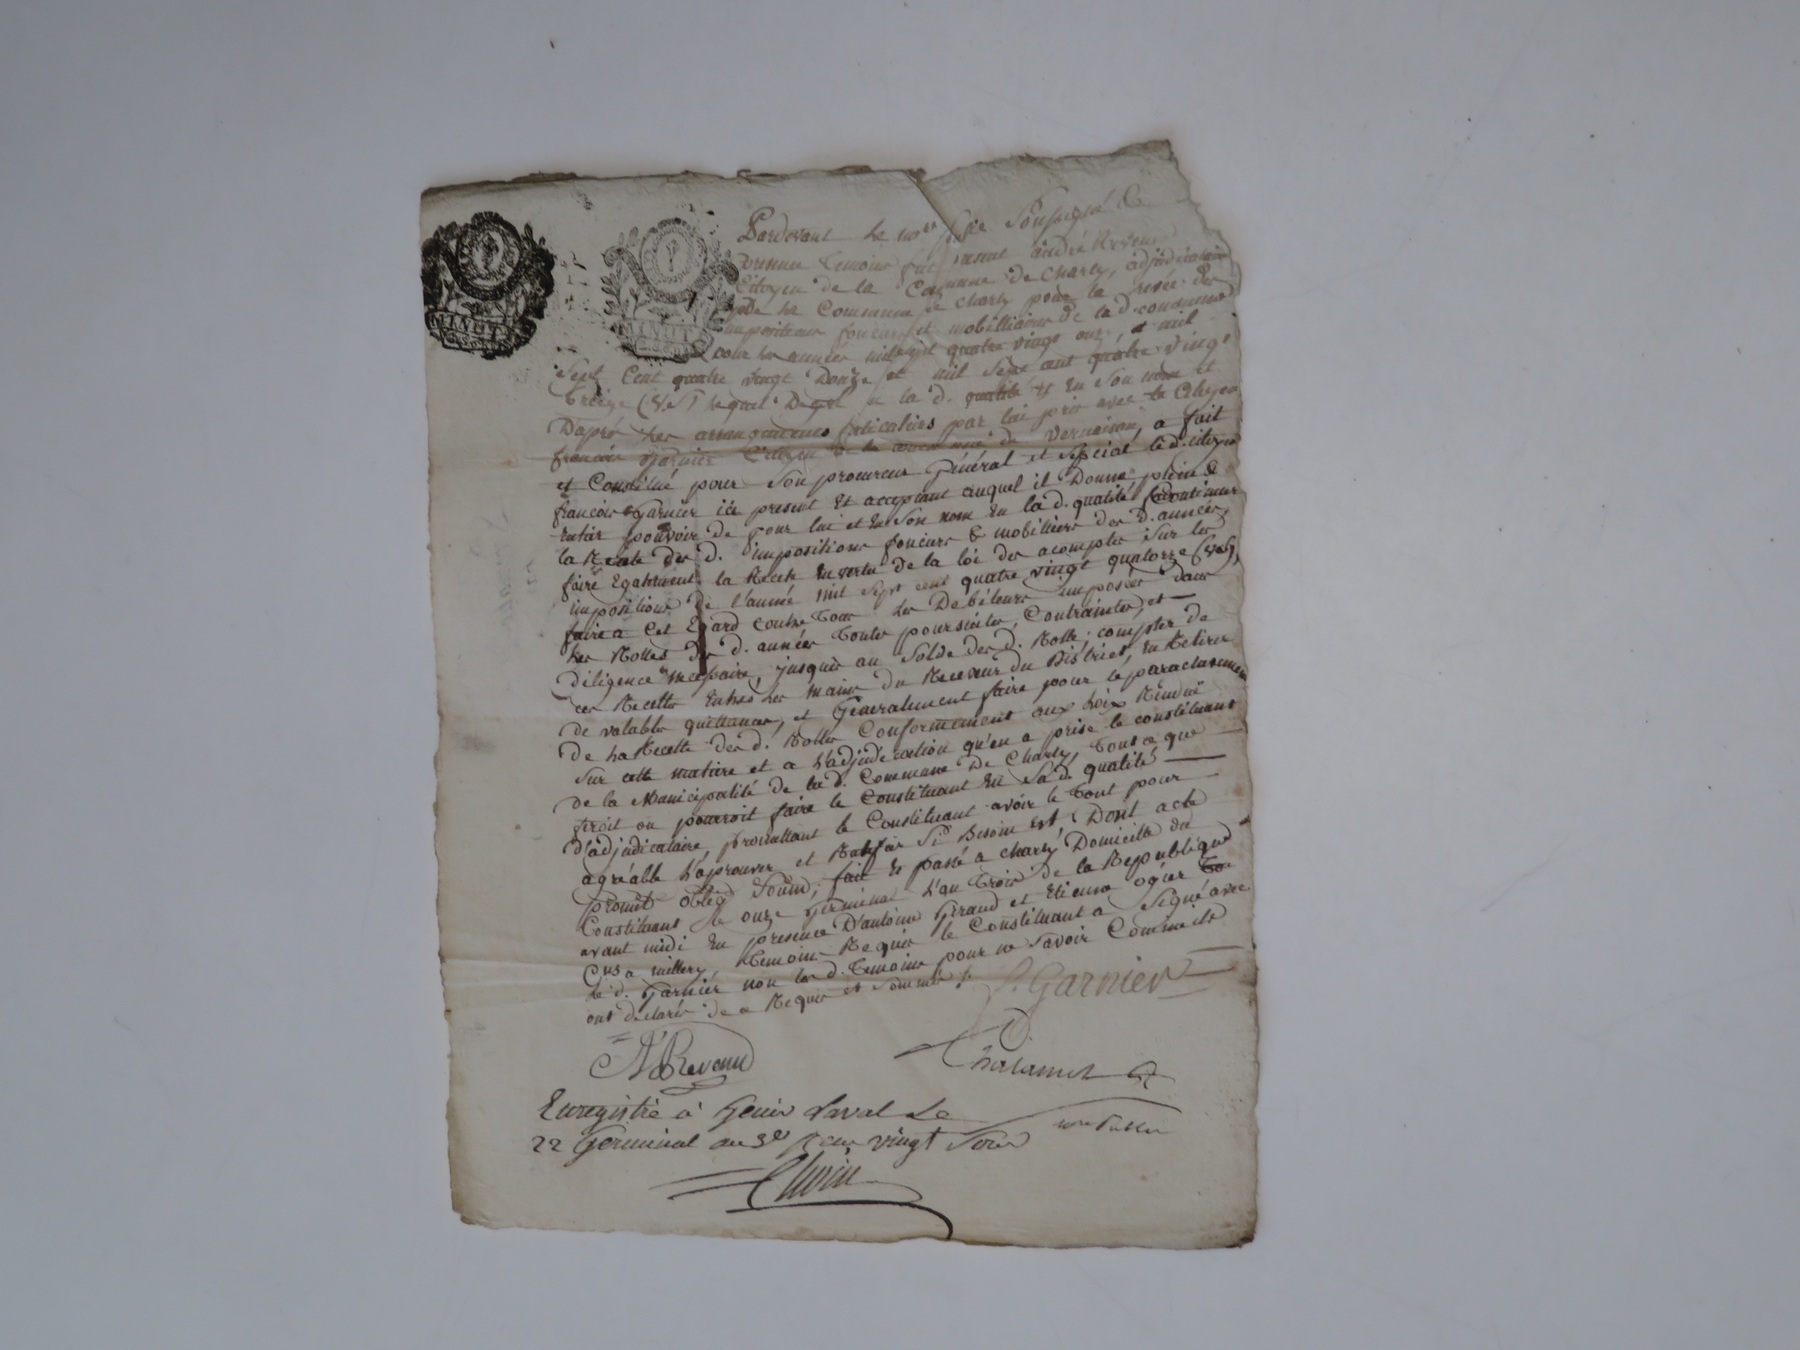 MINUTE
MINUTE
Pardevant Le no.re Soussigné &
temoins fut present andré Revenu
Citoyen de la Commune de Charly, adjudicataire
de la Commune de Charly pour la levée des
impositions foncieres et mobilliaires de la d. commune
pour les années mil sept quatre vingt onze, et mil
Sept Cent quatre vingt Douze et mil Sept cent quatre vingt
treize (v.s) lequel De gré en la d. qualité & En Son nom et
D'apres les arrangements particuliers par lui pris avec le Citoyen
francois Garnier Citoyen de la commune de Vernaison, a fait
et Constitué pour Son procureur Général et Special le d. citoyen
francois Garnier ici present Et acceptant auquel il Donne plein &
Entier pouvoir de pour lui et En Son nom En la d. qualité Continuer
la Recette des d. impositions foncieres & mobilliers des d. années,
faire Egalement la Recette En vertu de la loi des acomptes Sur les
impositions de l'année mil Sept cent quatre vingt quatorze (v.s),
faire a Cet Egard contre Tous les Débiteurs imposés dans
les Rolles des d. années Toutes poursuites, Contraintes et
Diligence necessaire, jusques au Solde des d. Rolle, compter de
ces Recettes Entre les mains du Receveur du District, En Retirer
de valables quittances, et Generalement faire pour le parachevement
de la Recette des d. Rolles Conformement aux Loix Rendue
Sur cette matiere et a L'adjudication qu'en a prise le constituant
de la Municipalité de la d. Commune De Charly, Tout ce que
feroit ou pourroit faire le Constituant En Sa d. qualité
D'adjudicataire, promettant le Constituant avoir le Tout pour
agréable L'aprouver et Ratifier Si Besoin Est, Dont acte
promet oblig. Soum; fait & passé a charly Domicille du
Constituant le onze Germinal L'an Trois de la Republique
avant midi En presence D'antoine Giraud et Etienne ogier
Cns a millery, Temoins Requis le Constituant a Signé avec
le d. Garnier non les d. Temoins pour ne Savoir Comme ils
ont declarés de ce Requis et Sommés
f. Garnier
A Revenu
Enregistré à Genis Laval Le
22 Germinal an 3e Reçu vingt Sous